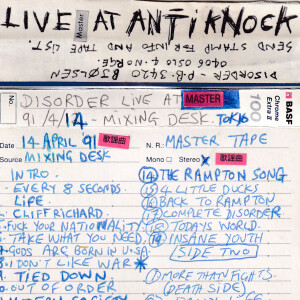 LIVE AT ANTiKNOCK
Master
SEND STAMP FOR INFO AND TAPE LIST.
DISORDER - P.B. 3420
No.
DISORDER LIVE AT
MASTER
91/4/14 - MIXING DESK. TOKYO
100
Chrome
Extra II
BASF
Date
14 APRIL 91
歌謡曲
N.R.
MASTER TAPE
Source
MIXING DESK
Mono
Stereo
x
歌謡曲
INTRO.
EVERY 8 SECONDS.
LIFE.
CLIFF RICHARD.
FUCK YOUR NATIONALITY.
TAKE WHAT YOU NEED.
GODS ARE BORN IN USA
I DON'T LIKE WAR *
TIED DOWN
OUT OF ORDER
SOCIETY
14 THE RAMPTON SONG
15 4 LITTLE DUCKS
16 BACK TO RAMPTON
17 COMPLETE DISORDER
18 TODAYS WORLD.
19 INSANE YOUTH
SIDE TWO
1 MORE THAN FIGHTS
(DEATH SIDE)